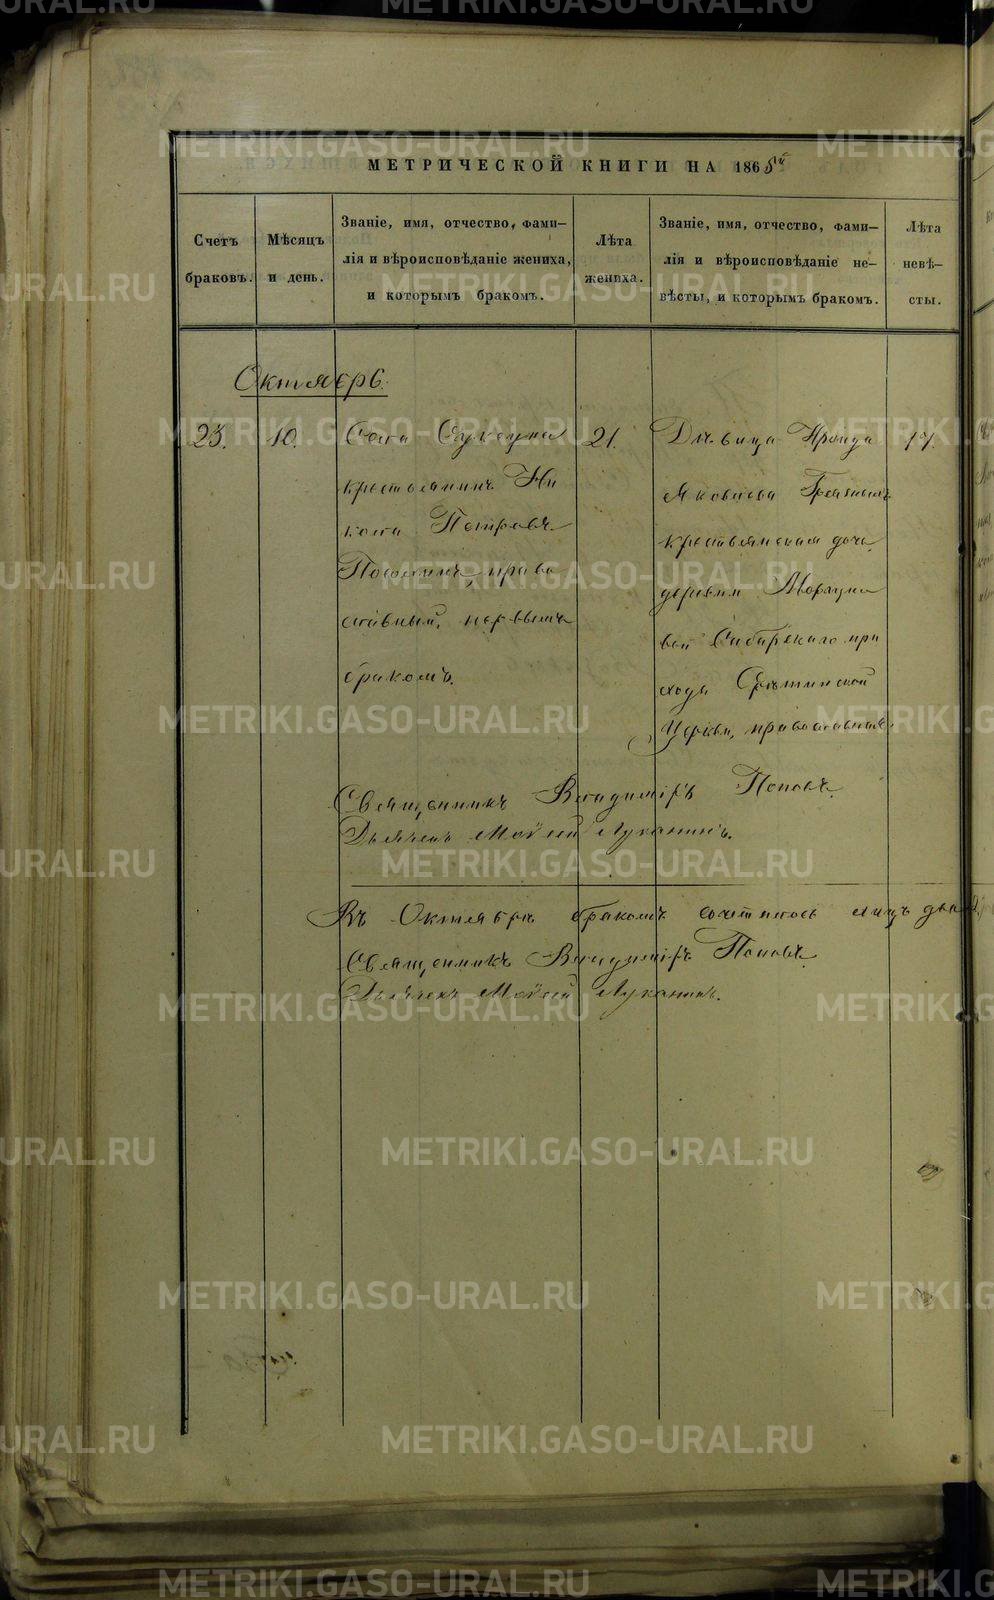 МЕТРИЧЕСКОЙ КНИГИ НА 1865й
Счетъ
браковъ.
Мѣсяцъ
и день.
Званіе, имя, отчество, фами-
лія и вѣроисповѣданіе жениха,
и которымъ бракомъ.
Лѣта
жениха.
Званіе, имя, отчество, фами-
лія и вѣроисповѣданіе не-
вѣсты, и которымъ бракомъ.
Лѣта
невѣ-
сты.
Октябрь.
23.
10.
Села Сулеуна
крестьянинъ Ни
кола Петровъ
православный, первымъ
бракомъ.
21.
Дѣвица Ираида
Яковлева
крестьянская дочь,
деревни
Сибирскаго при
хода Срѣтинской
Церкви, православная.
17.
Священникъ Владиміръ Поповъ.
Дьячекъ Мойсей Луканинъ.
Въ Октябрѣ бракомъ сочталось лицъ два
Священникъ Владиміръ Поповъ
Дьячекъ Мойсей Луканинъ.
METRIKI.GASO-URAL.RU